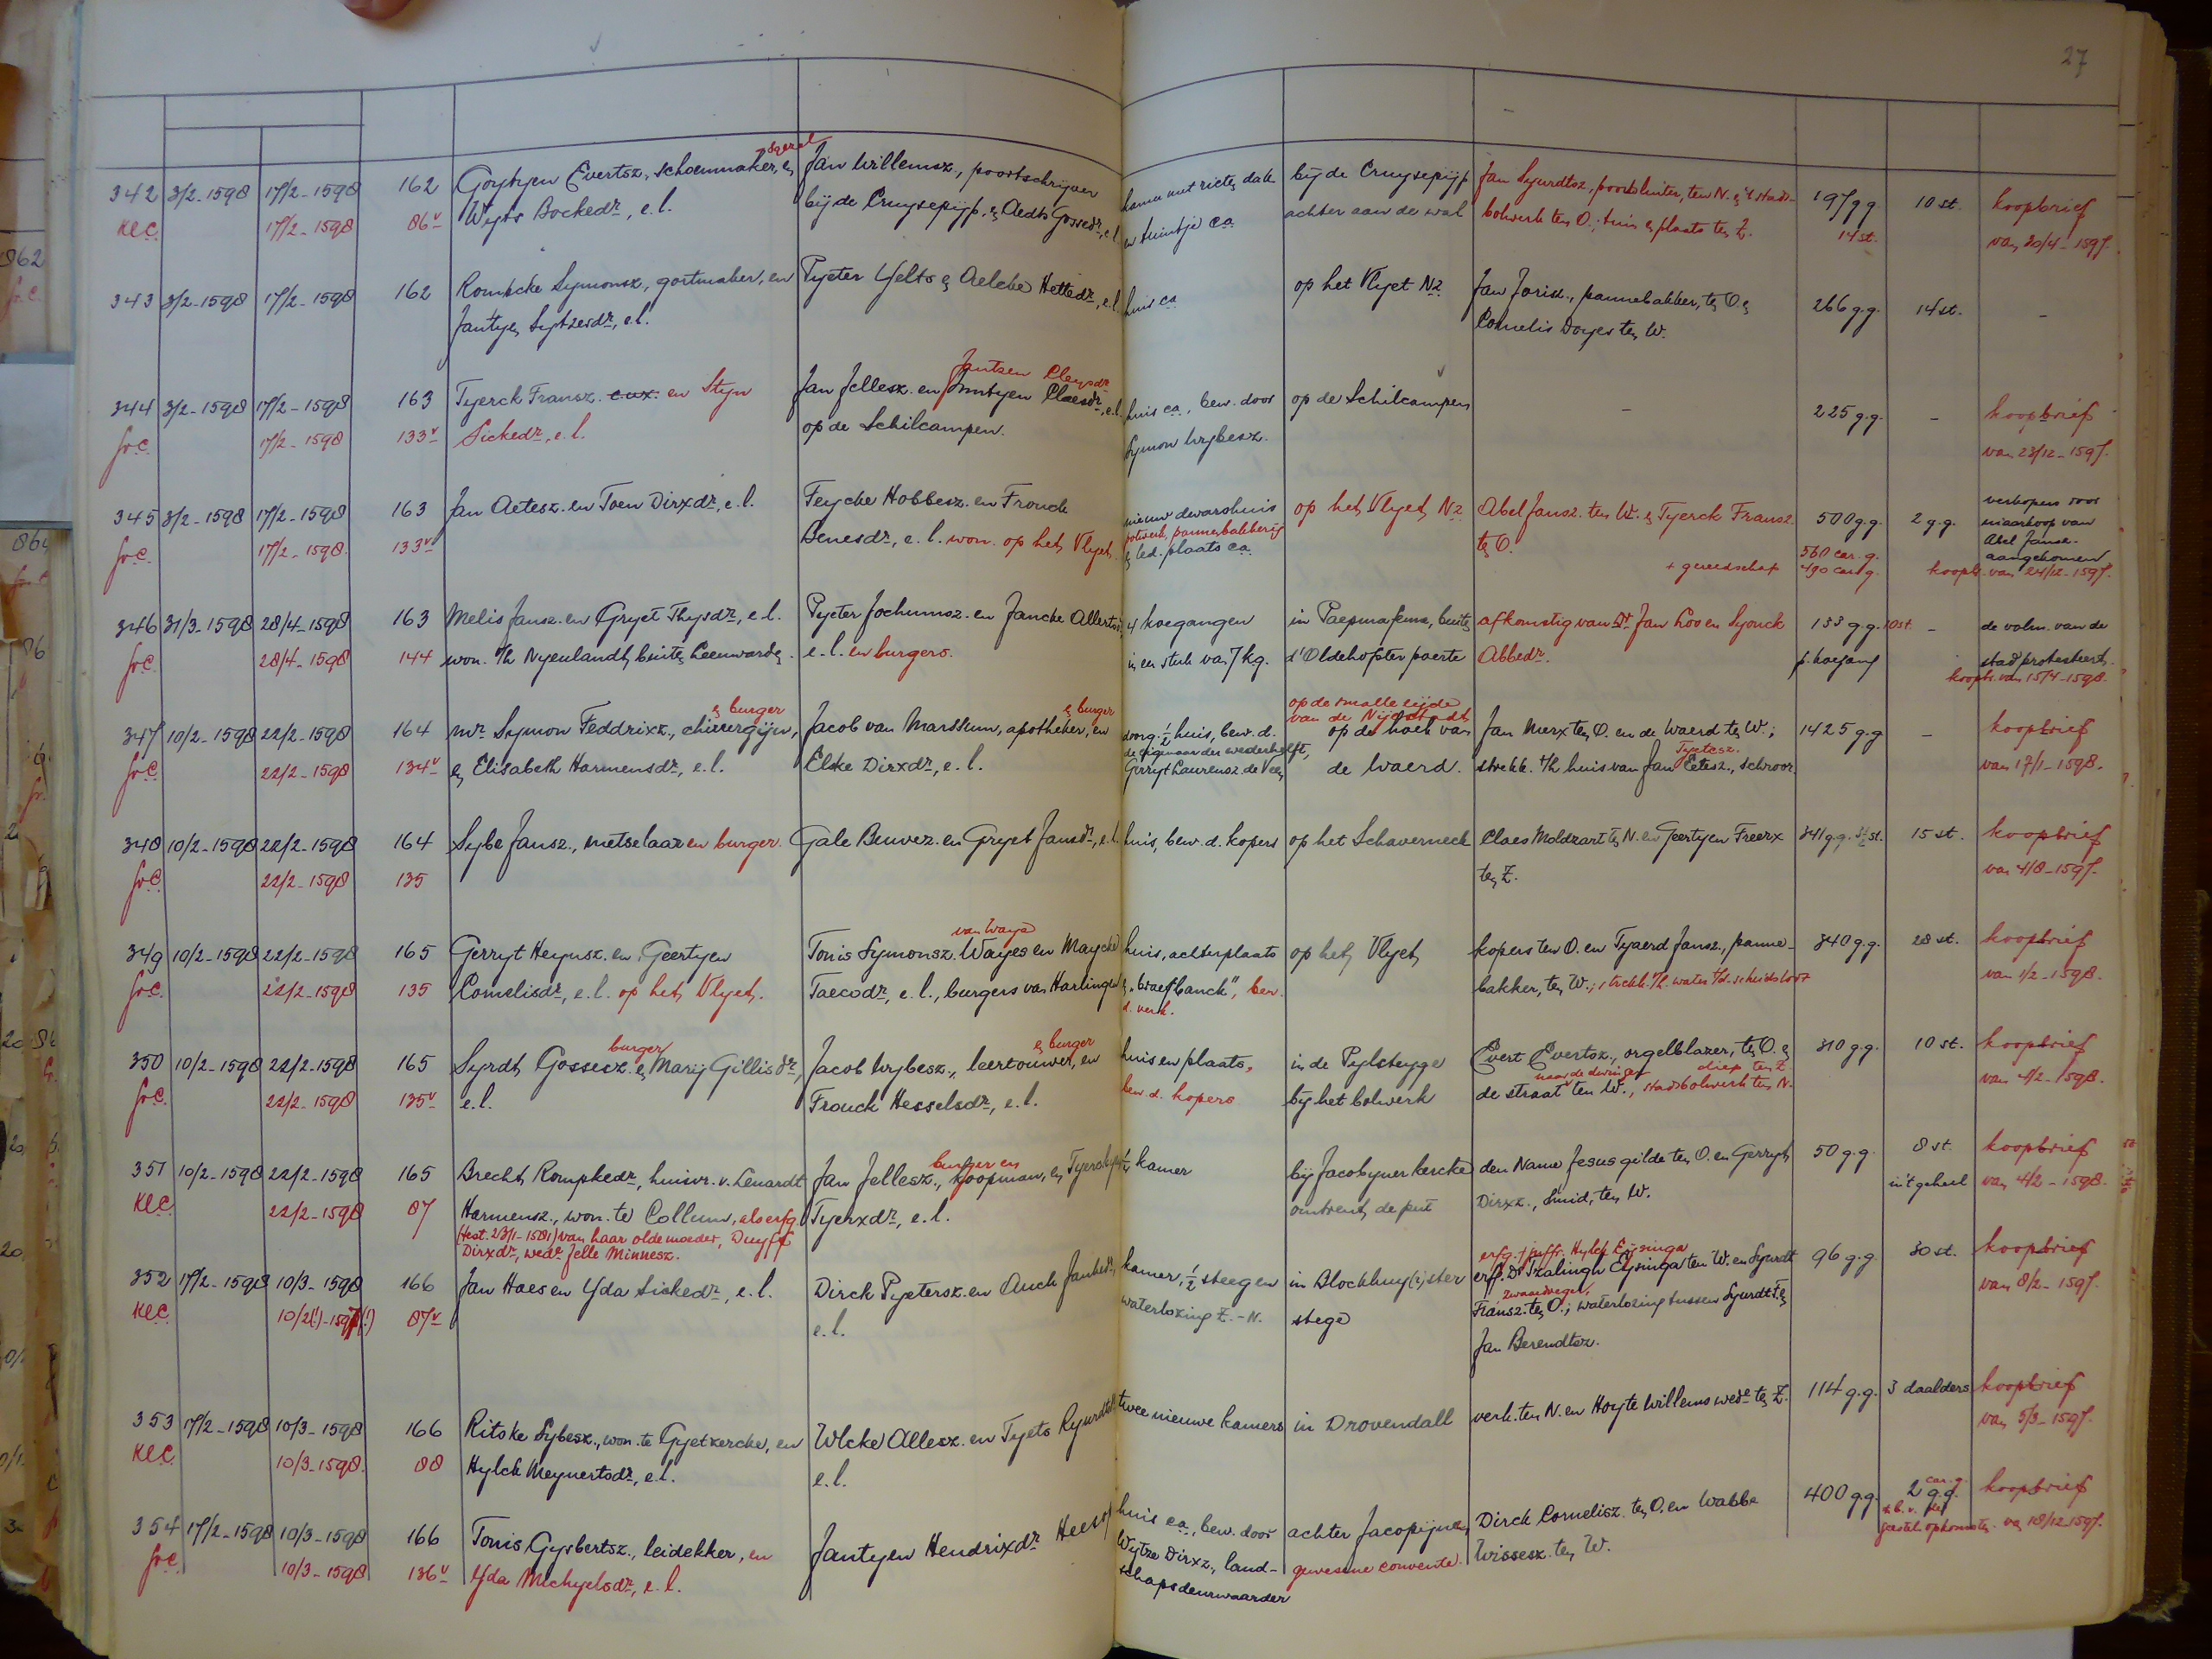 27
342 3/2-1598 17/2-1598 162 Goytyen Evertsz., schoenmaker, en Jan Willemsz., poortschrijver kamer met rieten dak bij de Cruysepijp Jan Syurdtsz., poortsluiter, ten N. en 't stads- 197 g.g. 10 st. koopbrief
KeC. 17/2-1598 86v Wyts Bockedr., e.l. bij de Cruysepijp, en Aedts Gossedr., e.l. en tuintje ca. achter aan de wal bolwerk ten O.; tuin en plaats ten Z. 14 st. van 20/4-1597.
343 3/2-1598 17/2-1598 162 Rombcke Symonsz., gortmaker, en Pyeter Yelts en Aelcke Hettedr., e.l. huis ca. op het Vlyet Nz. Jan Jorisz., pannebakker, ten O. en 266 g.g. 14 st. -
Jantyen Sytzesdr., e.l. Cornelis Doyes ten W.
Jantzen Cleysdr.
344 3/2-1598 17/2-1598 163 Tyerck Fransz. e.ux. en Styn Jan Jellesz. en Jantyen Claesdr., e.l. huis ca., bew. door op de Schilcampen - 225 g.g. - koopbrief
Gr.C. 17/2-1598 133v Sickedr., e.l. op de Schilcampen. Symon Wybesz. van 23/12-1597.
345 3/2-1598 17/2-1598 163 Jan Aetesz. en Toen Dirxdr., e.l. Feycke Hobbesz. en Frouck nieuw dwarshuis op het Vlyet Nz. Abel Jansz. ten W. en Tyerck Fransz. 500 g.g. 2 g.g. verkopers door
Gr.C. 17/2-1598. 133v Benesdr., e.l. won. op het Vlyet. pannebakkerij en led. plaats ca. ten O. niaarkoop van
Abel Jansz.
+ gereedschap 560 car. g. aangekomen
490 car. g. koopbr. van 24/12-1597.
346 31/3-1598 28/4-1598 163 Melis Jansz. en Gryet Thysdr., e.l. Pyeter Jochumsz. en Jancke Allertsdr. 4 koegangen in Paepmafenne, buiten afkomstig van Jan Loo en Syouck 133 g.g. 10 st. - de volm. van de
Gr.C. 28/4-1598 144 won. i/h Nyeulandt buiten Leeuwarden. e.l. en burgers. in een stuk van 7 kg. d'Oldehofster poerte Abbedr. p. koegang stad protesteert.
koopbr. van 15/4-1598.
en burger en burger op de smalle zijde
van de Nijestadt
347 10/2-1598 22/2-1598 164 mr. Symon Feddrixz., chirurgijn, Jacob van Marssum, apotheker, en doorg. 1/2 huis, bew. d. op de hoek van Jan Merx ten O. en de Waerd ten W.; 1425 g.g. - koopbrief
Gr.C. 22/2-1598 134v en Elisabeth Harmensdr., e.l. Elske Dirxdr., e.l. de eigenaar der wederhelft, Gerryt Laurensz. de Veen de Waerd. strekk. t/h huis van Jan Eetesz., schroor. van 17/1-1598.
Tyetesz.
348 10/2-1598 22/2-1598 164 Sybe Jansz., metselaar en burger. Gale Beuwez. en Gryet Jansdr., e.l. huis, bew. d. kopers op het Schaverneck Claes Moldzart ten N. en Geertyen Freerx 341 g.g. st. 15 st. koopbrief
Gr.C. 22/2-1598 135 ten Z. van 4/8-1597.
van Wayd
349 10/2-1598 22/2-1598 165 Gerryt Heynsz. en Geertyen Tonis Symonsz. Wayes en Maycke huis, achterplaats op het Vlyet kopers ten O. en Tyaerd Jansz., panne- 340 g.g. 28 st. koopbrief
Gr.C. 22/2-1598 135 Cornelisdr., e.l. op het Vlyet. Taecodr., e.l., burgers van Harlingen en "braefbanck", bew. d. verk. bakker, ten W.; strekk. t/h. water t/d. scheidsloot van 1/2-1598.
burger en burger
350 10/2-1598 22/2-1598 165 Syrdt Gossesz. en Marij Gillisdr., Jacob Wybesz., leertouwer, en huis en plaats, in de Pylsteyge Evert Evertsz., orgelblazer, ten O. en 310 g.g. 10 st. koopbrief
naar de dwinger diep ten Z.
Gr.C. 22/2-1598 135v e.l. Frouck Hesselsdr., e.l. bew. d. kopers bij het bolwerk de straat ten W., stadsbolwerk ten N. van 4/2-1598.
burger en
351 10/2-1598 22/2-1598 165 Brecht Rompkedr., huisvr. v. Lenardt Jan Jellesz., koopman, en Tyerckyen 1/2 kamer bij Jacobyner kercke den Name Jesus gilde ten O. en Gerryt 50 g.g. 8 st. koopbrief
KeC. 22/2-1598 87 Harmensz., won. te Collum, als erfg. Tyerxdr., e.l. omtrent de put Dirxz., smid, ten W. in't geheel van 4/2-1598.
(test. 23/1-1581) van haar olde moeder, Duyff
Dirxdr., wedr. Jelle Minnesz.
erfg. jffr. Hylck Eysinga
352 17/2-1598 10/3-1598 166 Jan Haes en Yda Sickedr., e.l. Dirck Pyetersz. en Auck Janckedr., kamer, 1/2 steeg en in Blockhuy(s)ster erff. Dr. Tzalingh Eysinga ten W. en Syurdt 96 g.g. 30 st. koopbrief
zwaardveger,
KeC. 10/2(!)-1597(!) 87v e.l. waterlozing Z.-N. stege Fransz. ten O.; waterlozing tussen Syurdt F. en van 8/2-1597.
Jan Berendtsz.
353 17/2-1598 10/3-1598 166 Ritske Sybesz., won. te Gyetzercke, en Wlcke Allesz. en Tyets Ryurdtsdr. twee nieuwe kamers in Drovendall verk. ten N. en Hoyte Willems wede. ten Z. 114 g.g. 3 daalders koopbrief
KeC. 10/3-1598. 88 Hylck Meynertsdr., e.l. e.l. van 5/3-1597.
354 17/2-1598 10/3-1598 166 Tonis Gysbertsz., leidekker, en Jantyen Hendrixdr. huis ca., bew. door achter Jacopijnen Dirck Cornelisz. ten O. en Wabbe 400 g.g. 2 g.g. koopbrief
car. g.
Gr.C. 10/3-1598 136v Yda Michyelsdr., e.l. Wytze Dirxz., land- gewesene convente. Wissesz. ten W. van 18/12-1597.
schapsdeurwaarder